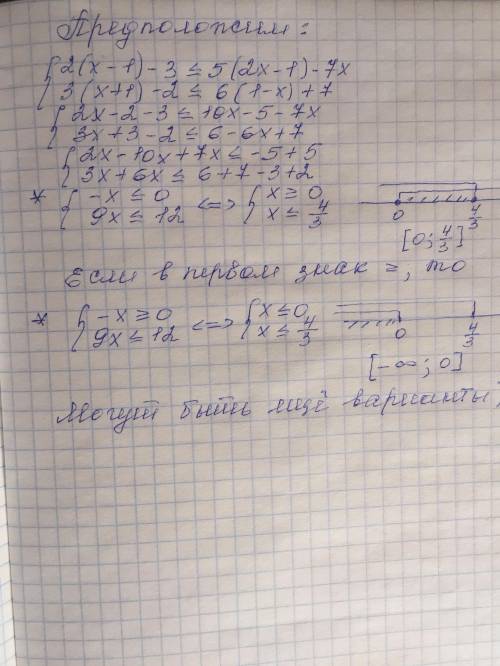 Предположим:
{2(x-1)-3≤5(2x-1)-7x
{3(x+1)-2≤6(1-x)+7
{2x-2-3≤10x-5-7x
{3x+3-2≤6-6x+7
{2x-10x+7x≤-5+5
{3x+6x≤6+7-3+2
* {-x≤0 <=> {x≥0
{9x≤12 {x≤4/3
0 4/3
[0;4/3]
Если в первом знак ≥, то
* {-x≥0 <=> {x≤0
{9x≤12 {x≤4/3
0 4/3
[-∞;0]
Могут быть ещё варианты,